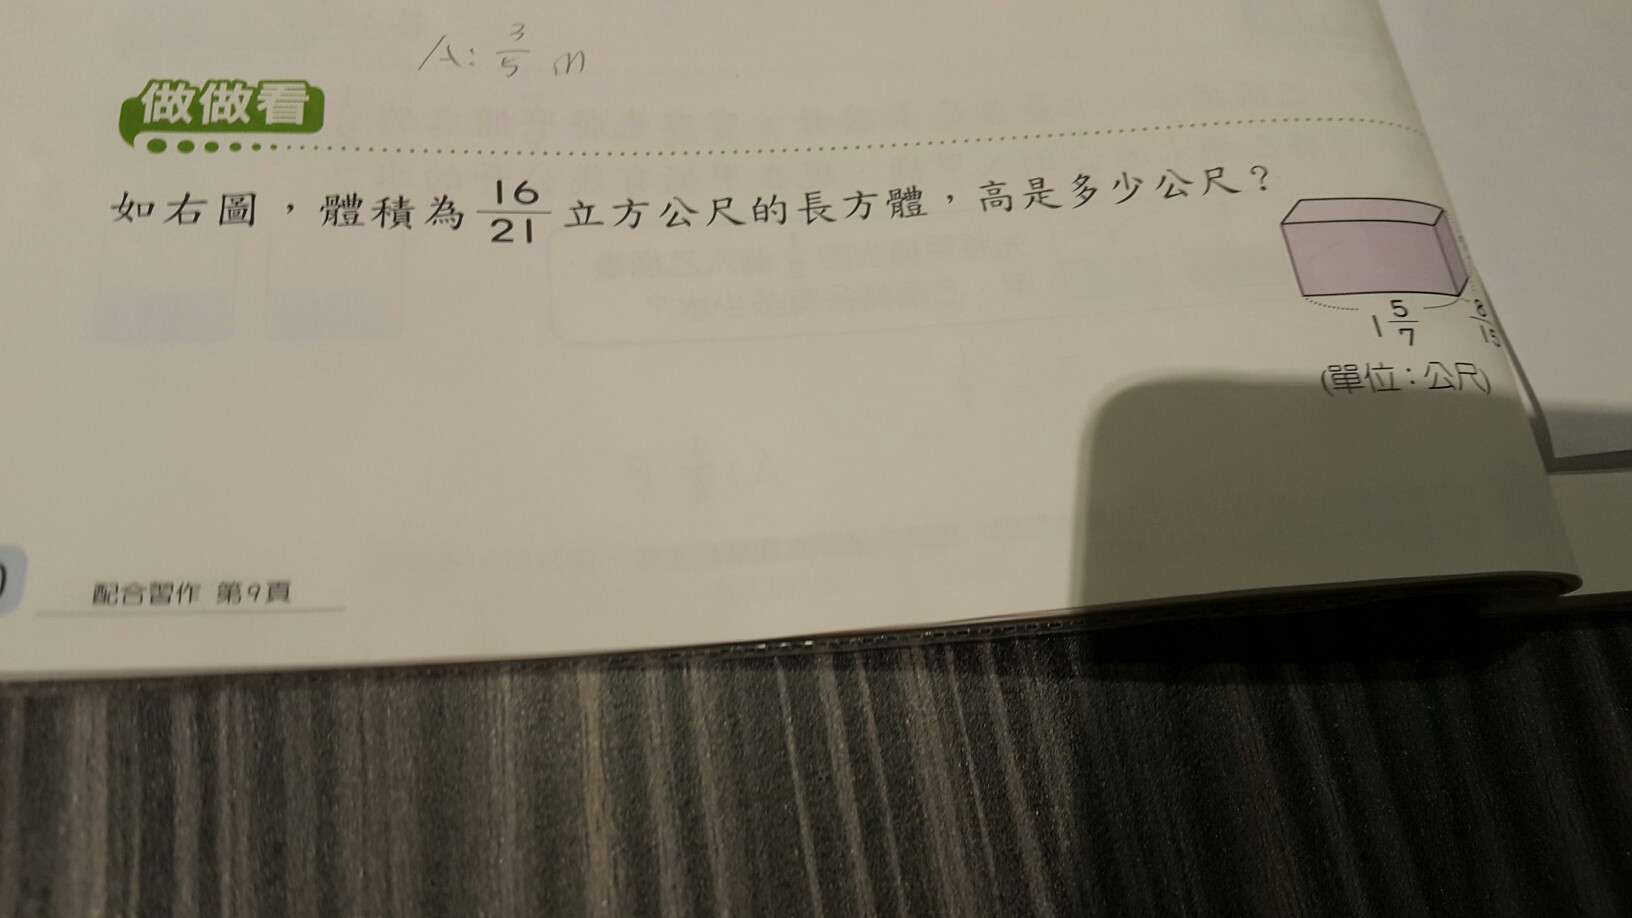 A: 3/5 m
做做看
如右圖，體積為 16/21 立方公尺的長方體，高是多少公尺？
1 5/7
8/15
(單位：公尺)
配合習作 第9頁